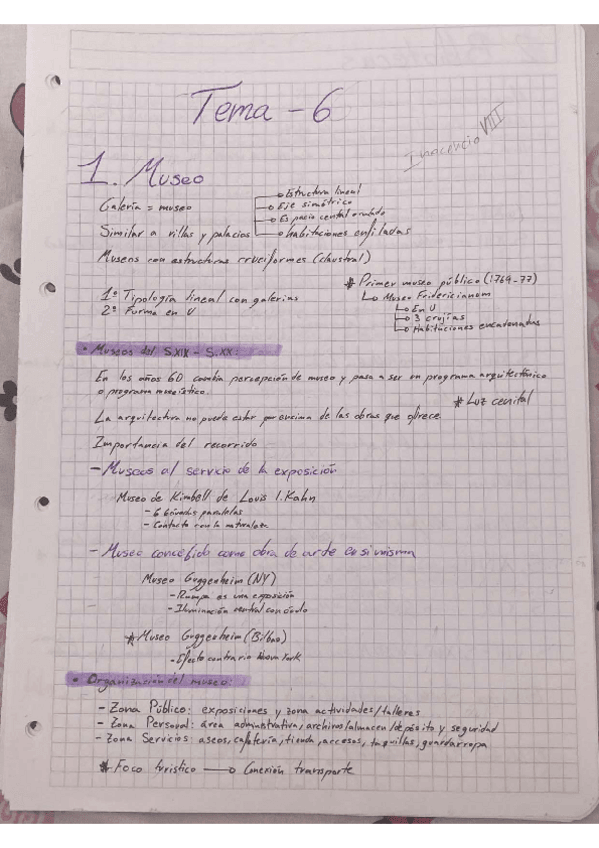 Tema - 6
Inocencio VIII
1. Museo
Galería = museo
Estructura lineal
Eje simétrico
Espacio central ornado
Habitaciones enfiladas
Similar a villas y palacios
Museos con estructuras cruciformes (claustral)
1º Tipología lineal con galerias
2º Forma en U
* Primer museo público (1769-77)
Museo Fridericianum
En U
3 crujías
Habitaciones encadenadas
• Museos del S.XIX - S.XX:
En los años 60 cambia percepción de museo y pasa a ser un programa arquitectónico
o programa museístico.
* Luz cenital
La arquitectura no puede estar por encima de las obras que ofrece
Importancia del recorrido
- Museos al servicio de la exposición
Museo de Kimbell de Louis I. Kahn
- 6 bóvedas paralelas
- Contacto con la naturaleza
- Museo concebido como obra de arte en si misma
Museo Guggenheim (NY)
- Rampa es una exposición
- Iluminación central con óculo
* Museo Guggenheim (Bilbao)
- Efecto contrario Nueva York
• Organización del museo:
- Zona Público: exposiciones y zona actividades/talleres
- Zona Personal: área administrativa, archivos/almacen/depósito y seguridad
- Zona Servicios: aseos, cafetería, tienda, accesos, taquillas, guardarropa
* Foco turistico → Conexión transporte